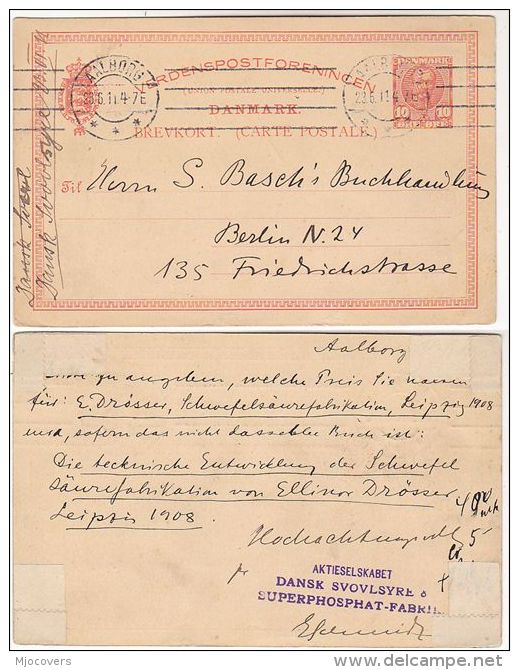 AALBORG
23.6.11.4-7E
VERDENSPOSTFORENINGEN
(UNION POSTALE UNIVERSELLE)
DANMARK.
BREVKORT. (CARTE POSTALE)
DANMARK
10 10
23.6.11.4-7E
Til Herrn S. Basch's Buchhandlung
Berlin N. 24
135 Friedrichstrasse
Dansk
Dansk Svovlsyre
Aalborg
zu angeben, welche Preis Sie
für: E. Drösser, Schwefelsäurefabrikation, Leipzig 1908
und, sofern das nicht dasselbe Buch ist:
Die technische Entwicklung der Schwefel
säurefabrikation von Ellinor Drösser
Leipzig 1908.
Hochachtungsvoll
AKTIESELSKABET
DANSK SVOVLSYRE &
SUPERPHOSPHAT-FABRIK
Mjocovers
delcampe.net